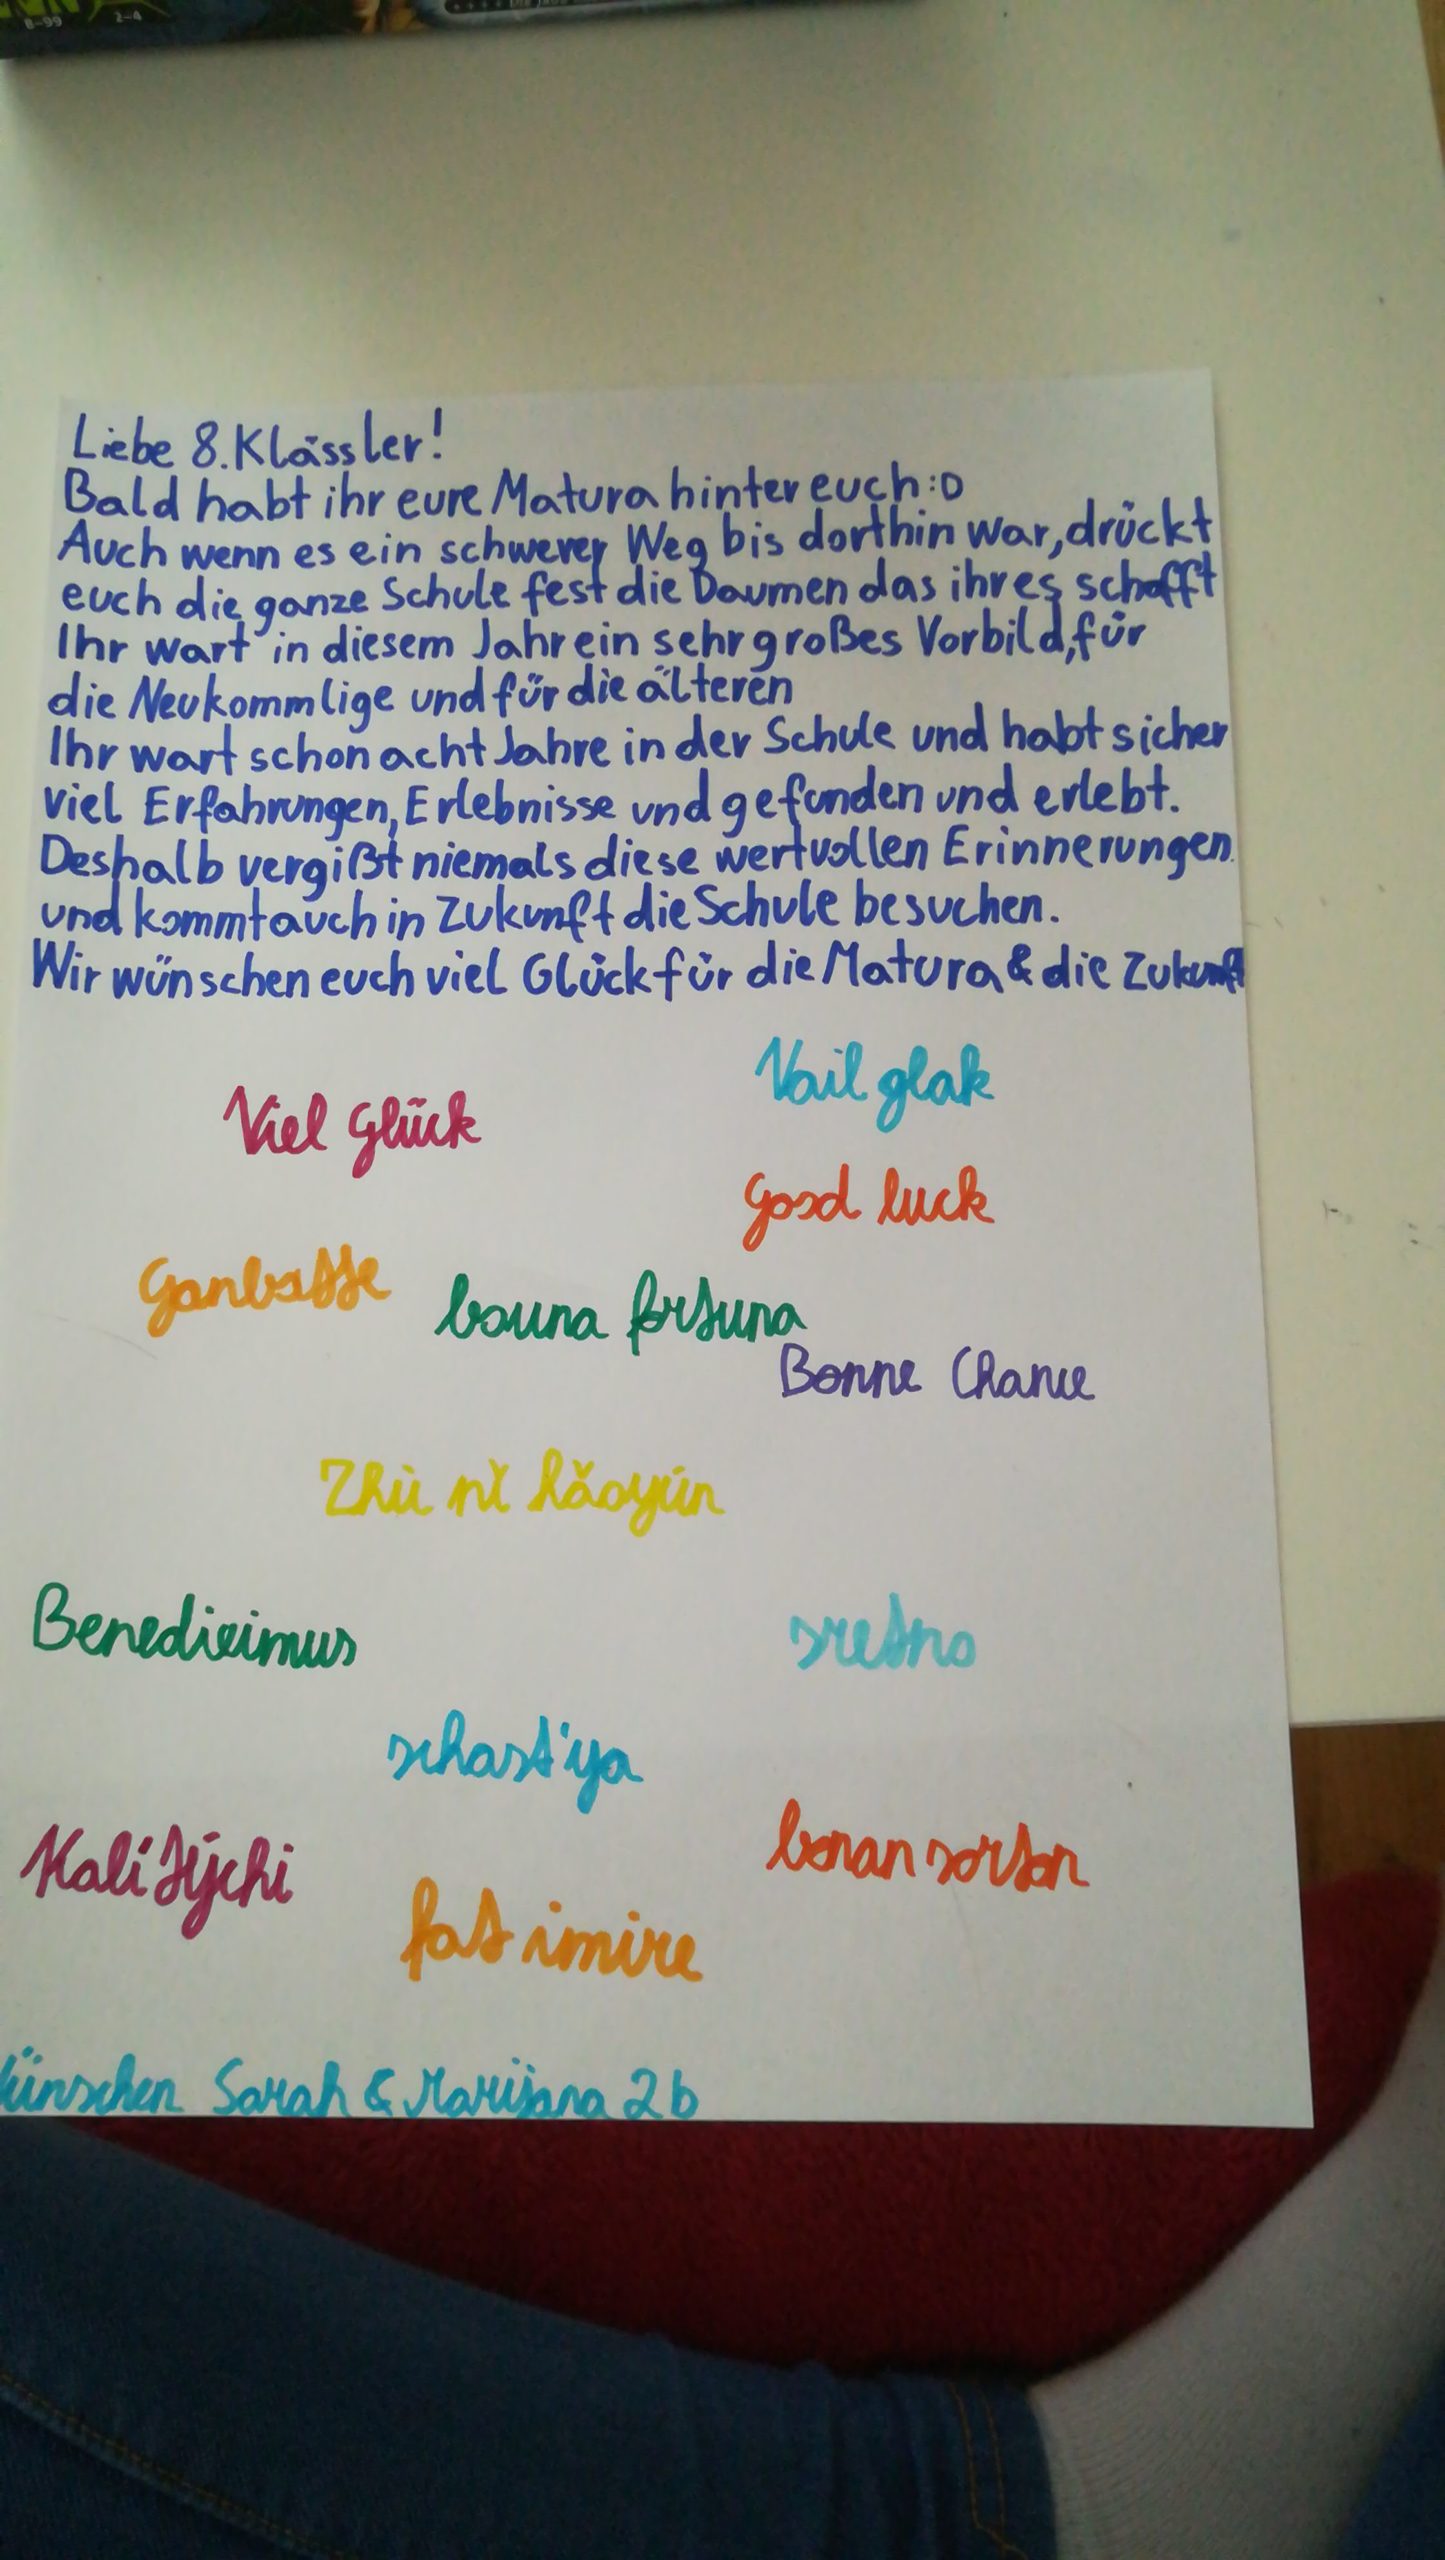 8-99 2-4
Liebe 8. Klässler!
Bald habt ihr eure Matura hinter euch :D
Auch wenn es ein schwerer Weg bis dorthin war, drückt
euch die ganze Schule fest die Daumen das ihr es schafft
Ihr wart in diesem Jahr ein sehr großes Vorbild, für
die Neukommlige und für die älteren
Ihr wart schon acht Jahre in der Schule und habt sicher
viel Erfahrungen, Erlebnisse und gefunden und erlebt.
Deshalb vergißt niemals diese wertvollen Erinnerungen
und kommt auch in Zukunft die Schule besuchen.
Wir wünschen euch viel Glück für die Matura & die Zukunft
Vail glak
Viel Glück
Good luck
Ganbatte
bouna fortuna
Bonne Chance
Zhù nǐ hǎoyún
Benedicimus
sretno
schast'ya
Kalí týchi
bonan sorton
fat i mire
Wünschen Sarah & Marijana 2b